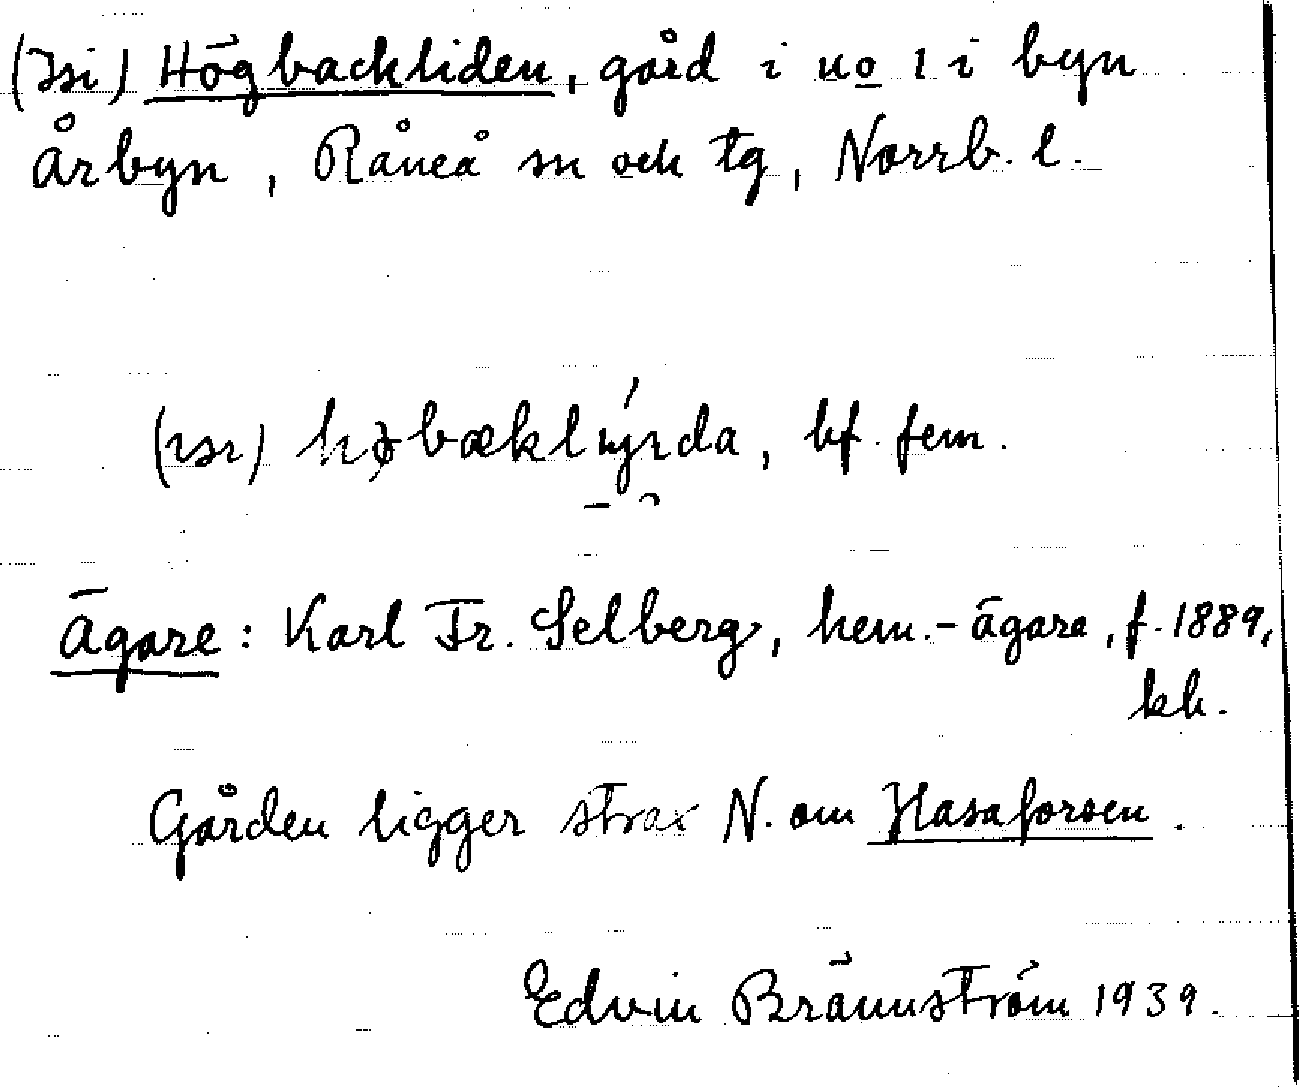 (Isi) Högbackliden, gård i no 1 i byn
Årbyn, Råneå sn och tg, Norrb. l.
bf. fem.
Ägare: Karl Fr. Selberg, hem.-ägare, f. 1889,
kk.
Gården ligger strax N. om Hasaforsen.
Edvin Brännström 1939.